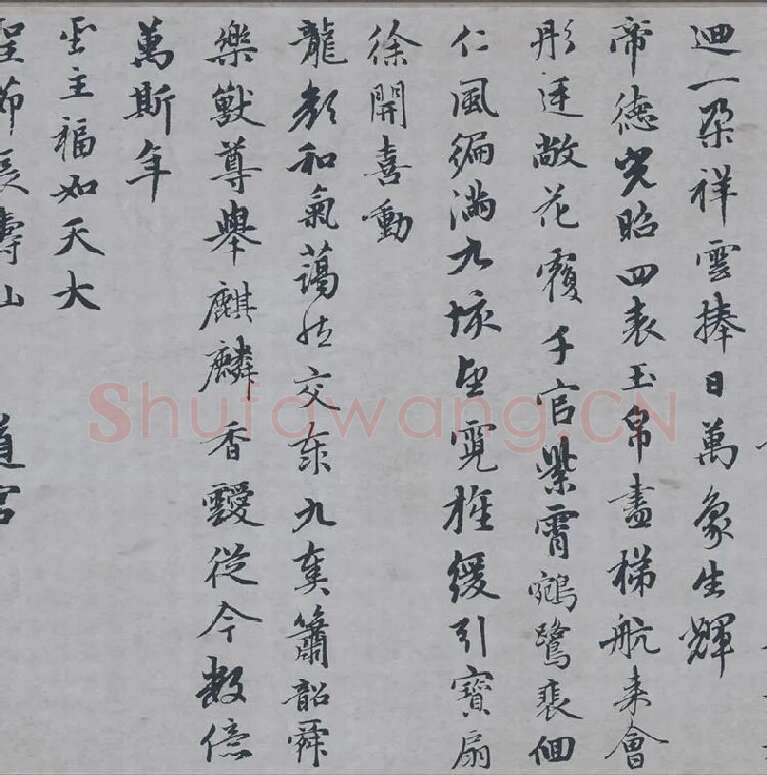 迴一朶祥雲捧日萬象生輝
帝德光昭四表玉帛盡梯航来會
彤庭敞花覆千官紫霄鵷鷺裵佪
仁風徧滿九垓望霓旌緩引寳扇
徐開喜動
龍顔和氣藹然交泰九奏簫韶舜
樂獸尊舉麒麟香靉從今數億
萬斯年
主福如天大
Shufawang.CN